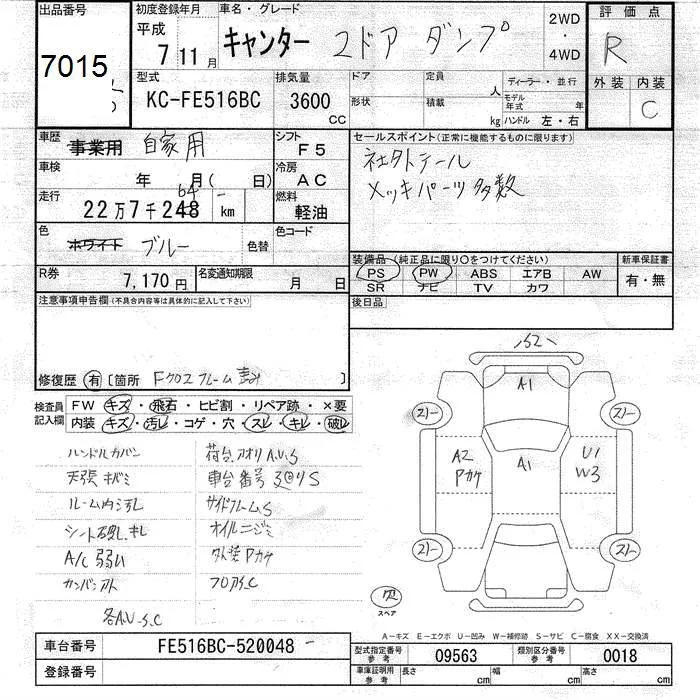 出品番号
7015
初度登録年月
平成
7 11月
車名・グレード
キャンター 2ドア ダンプ
2WD
・
4WD
評価点
R
型式
KC-FE516BC
排気量
3600
CC
ドア
定員
人
ディーラー・並行
形状
積載
kg
モデル年式
年
ハンドル 左・右
外装
内装
C
車歴
事業用 自家用
シフト
F5
車検
年 月( 日)
冷房
AC
走行
22万7千248 km
64
燃料
軽油
色
ホワイト ブルー
色替
色コード
R券
7,170円
名変通知期限
月 日
セールスポイント(正常に機能するものに限ります)
社外テール
メッキパーツ多数
装備品(純正品に限り○をつけてください)
新車保証書
PS PW ABS エアB AW
SR ナビ TV カワ
有・無
後日品
注意事項申告欄(不具合内容等は具体的に記入して下さい)
修復歴 有 [箇所 Fクロスフレーム ]
検査員
記入欄
FW キズ・飛石・ヒビ割・リペア跡・×要
内装・キズ・汚レ・コゲ・穴・スレ・キレ・破レ
ハンドルカバン
荷台アオリA.U.S
天張キバミ
車台番号 S
ルーム内汚レ
サイドフレームS
シート破レ.キレ
オイルニジミ
A/C弱い
外装Pカケ
フロアS.C
各A.U.S.C
S2
A1
A1
A2
Pカケ
U1
W3
スリー
スリー
スリー
スリー
スペア
A-キズ E-エクボ U-凹み W-補修跡 S-サビ C-腐食 XX-交換済
車台番号
FE516BC-520048
登録番号
型式指定番号
参考
09563
類別区分番号
参考
0018
車庫証明用
参考
長さ
cm
幅
cm
高さ
cm